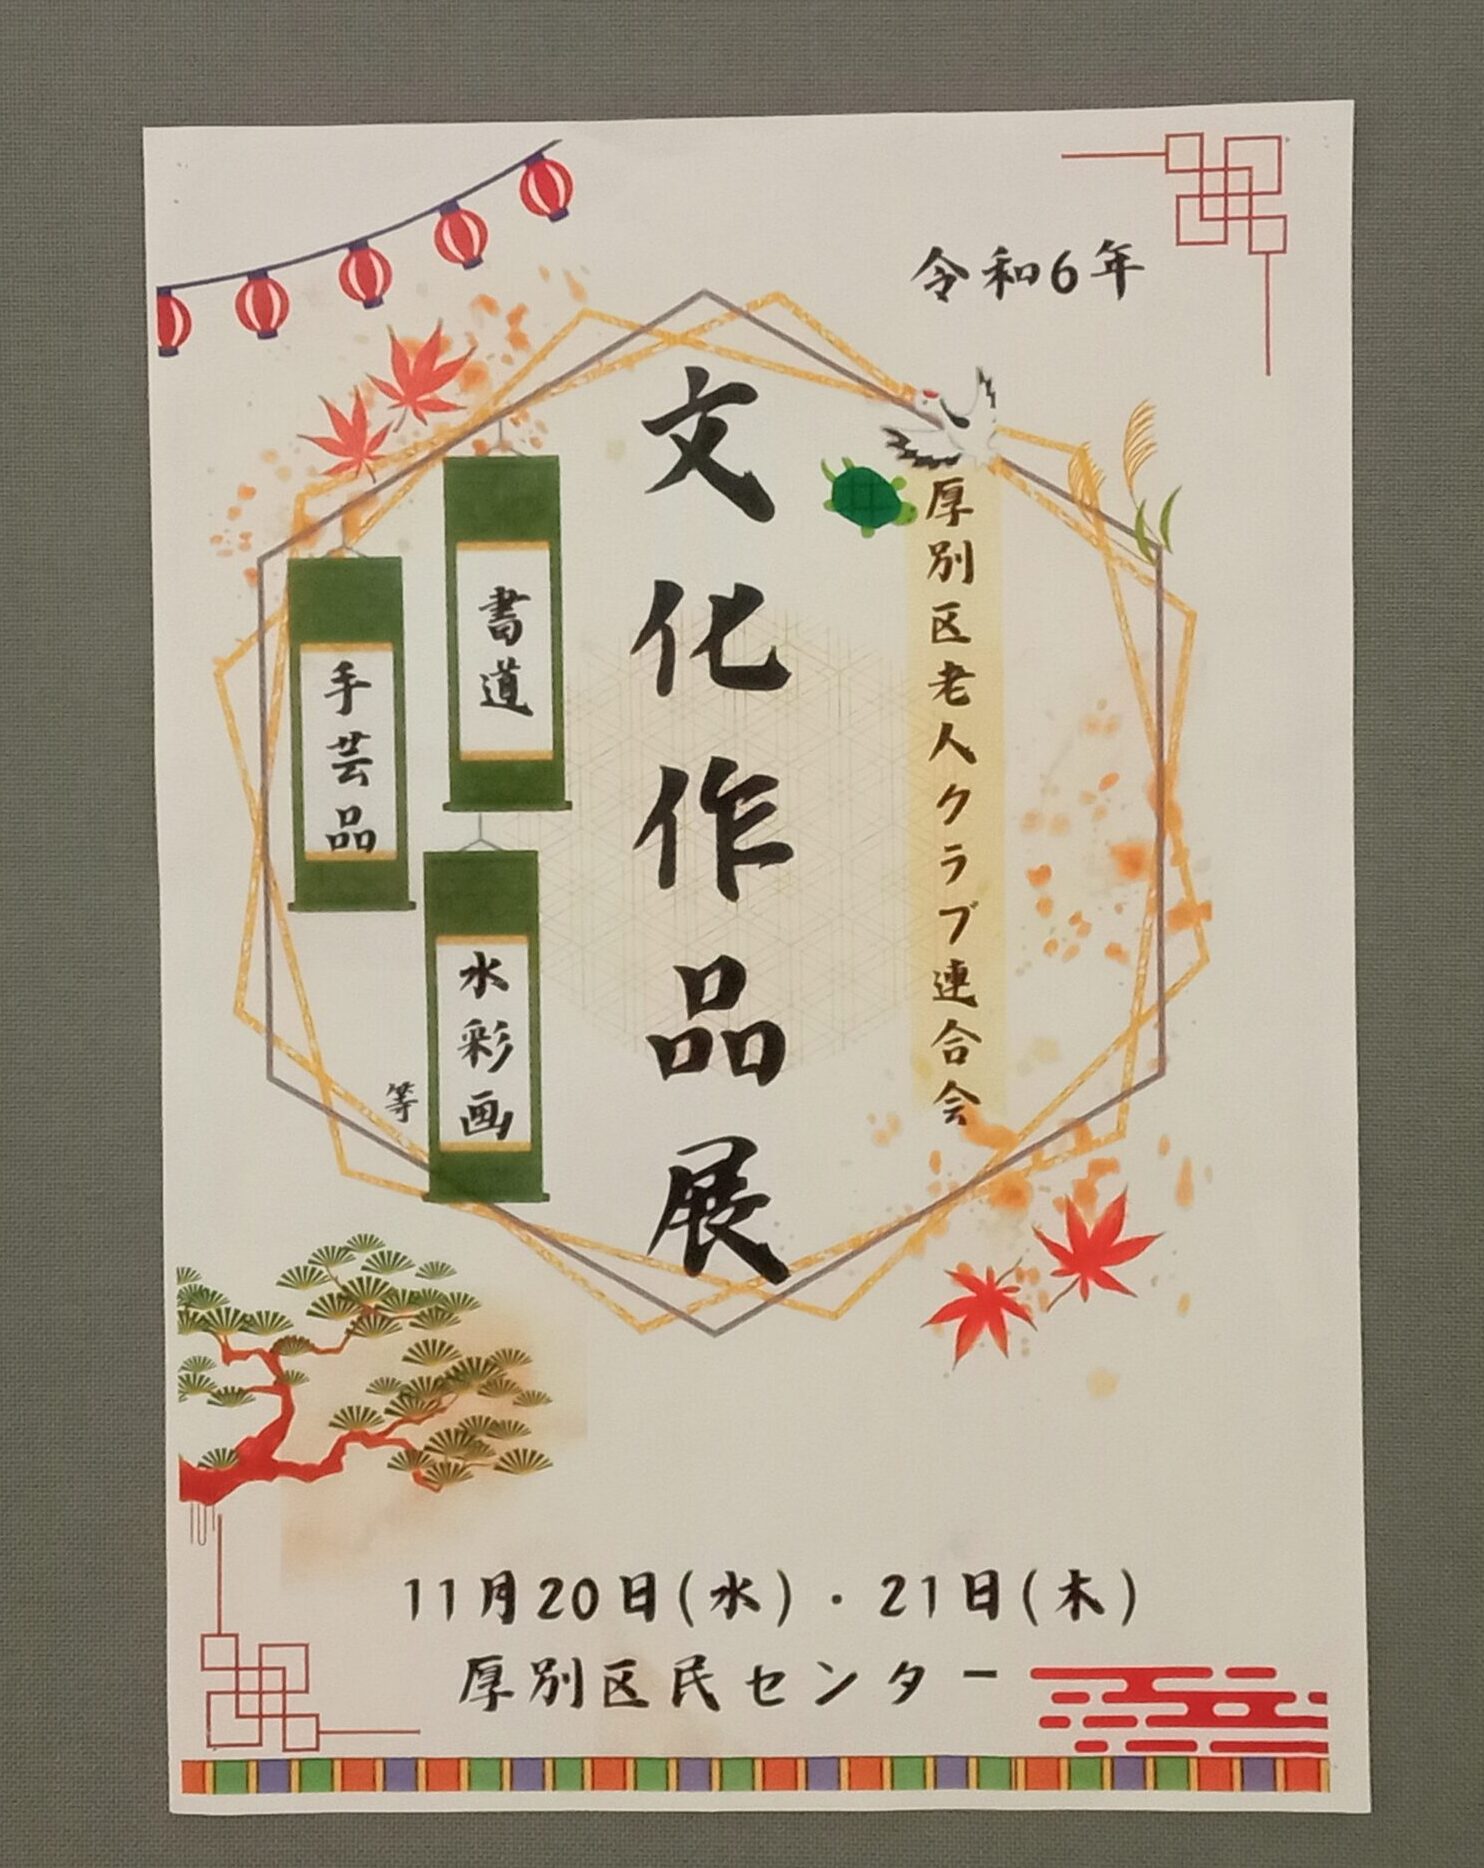 令和6年
厚別区老人クラブ連合会
文化作品展
書道
手芸品
水彩画
等
11月20日(水)・21日(木)
厚別区民センター